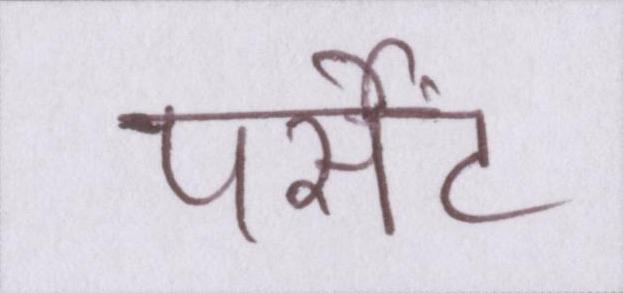 पर्सेंट